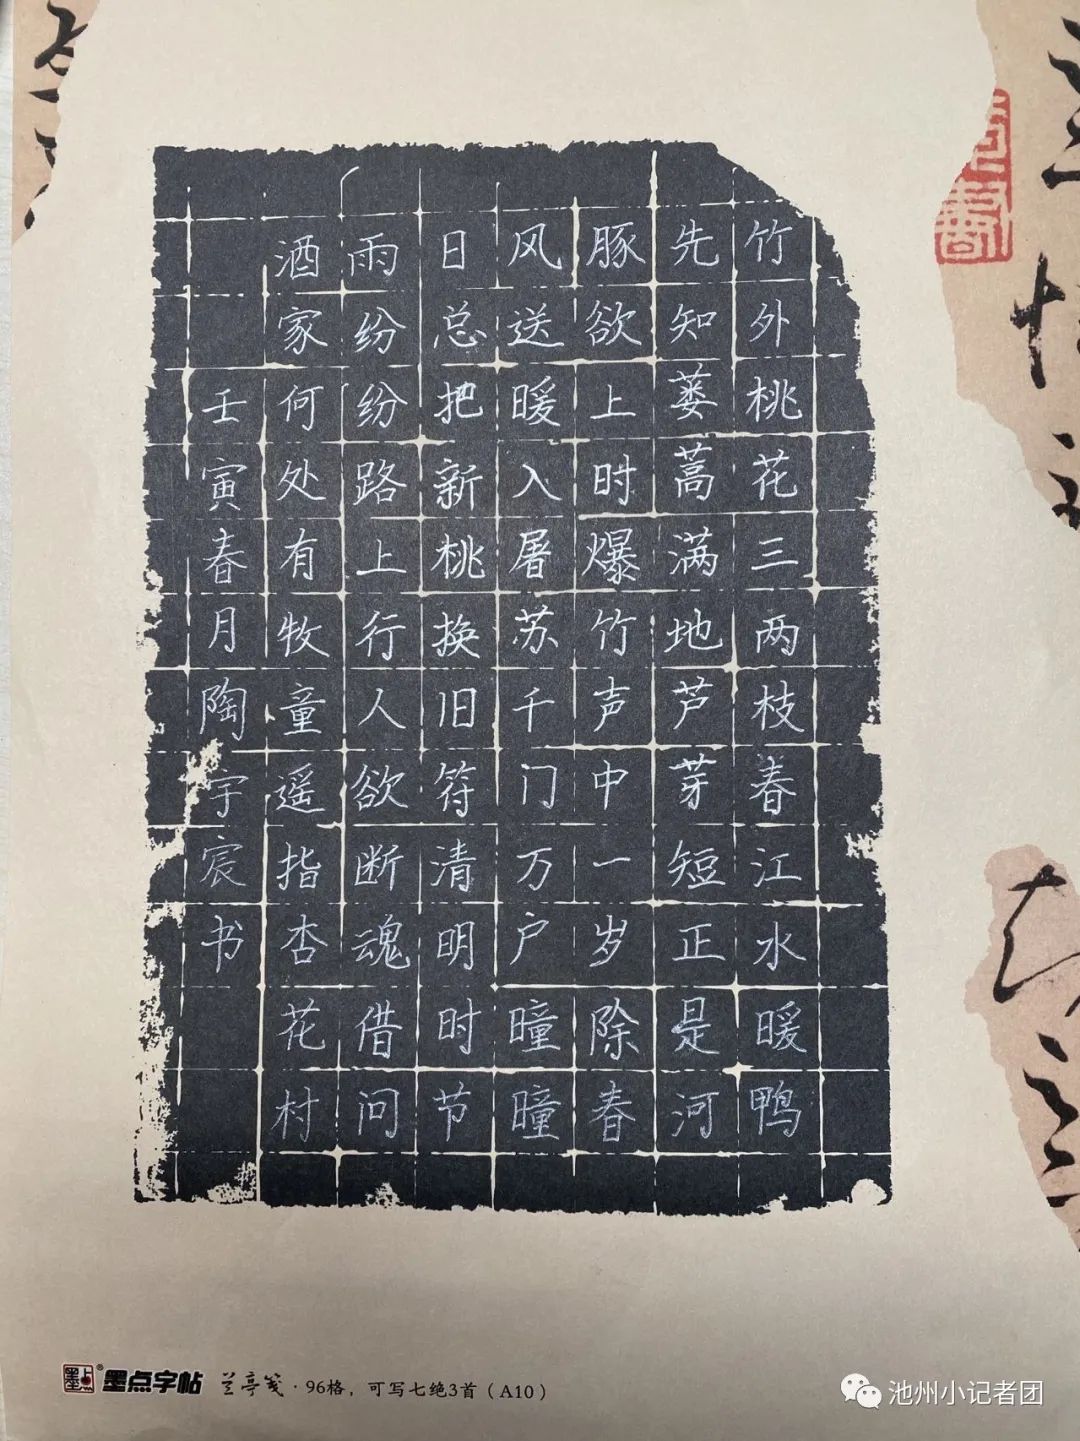 竹外桃花三两枝春江水暖鸭
先知蒌蒿满地芦芽短正是河
豚欲上时爆竹声中一岁除春
风送暖入屠苏千门万户曈曈
日总把新桃换旧符清明时节
雨纷纷路上行人欲断魂借问
酒家何处有牧童遥指杏花村
壬寅春月陶宇宸书
墨点字帖 兰亭笺·96格，可写七绝3首（A10）
池州小记者团